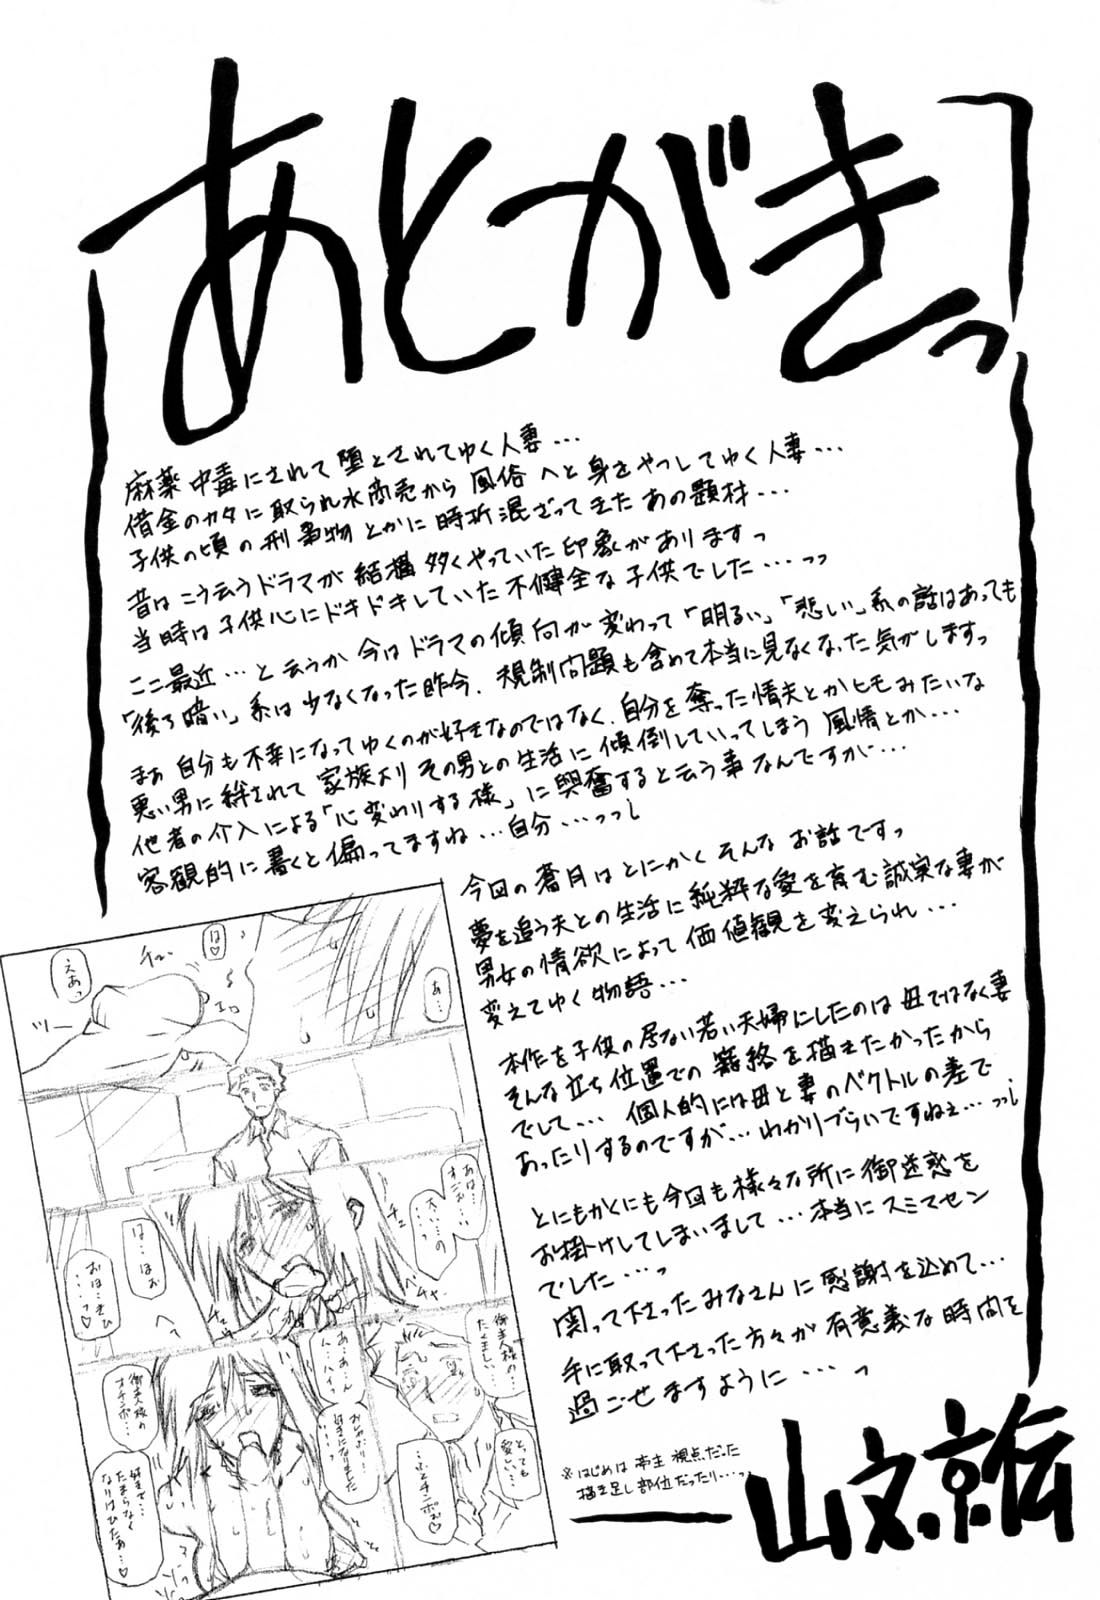 あとがきっ
麻薬中毒にされて堕とされてゆく人妻･･･
借金のカタに取られ水商売から風俗へと身をやつしてゆく人妻･･･
子供の頃の刑事物とかに時折混ざってきたあの題材･･･
昔はこう云うドラマが結構多くやっていた印象がありますっ
当時は子供心にドキドキしていた不健全な子供でした･･･っっ
ここ最近･･･と云うか今はドラマの傾向が変わって「明るい」「悲しい」系の話はあっても
「後ろ暗い」系は少なくなった昨今、規制問題も含めて本当に見なくなった気がしますっ
まぁ自分も不幸になってゆくのが好きなのではなく、自分を奪った情夫とかヒモみたいな
悪い男に絆されて家族よりその男との生活に傾倒していってしまう風情とか･･･
他者の介入による「心変わりする様」に興奮すると云う事なんですが･･･
客観的に書くと偏ってますね･･･自分･･･っっ
今回の蒼月はとにかくそんなお話ですっ
夢を追う夫との生活に純粋な愛を育む誠実な妻が
男女の情欲によって価値観を変えられ･･･
変えてゆく物語･･･
本作を子供の居ない若い夫婦にしたのは母ではなく妻
そんな立ち位置での籠絡を描きたかったから
でして･･･個人的には母と妻のベクトルの差で
あったりするのですが･･･わかりづらいですねぇ･･･っっ
とにもかくにも今回も様々な所に御迷惑を
お掛けしてしまいまして･･･本当にスミマセン
でした･･･っ
関って下さったみなさんに感謝を込めて･･･
手に取って下さった方々が有意義な時間を
過ごせますように･･･っ
※はじめは亭主視点だった
描き足し部位だったり･･･っっ
山文京伝
は♡
えあっ
あ･･･
ツー
あは･･･
大い･･･の
は･･･はお
おは･･･きひ
･･･っ♡
御主人様の･･･
たくましい･･･
あ･･･あ･･ん
おしゃぶり･･･
好きになりました
とっても
愛しい･･･
御主人様の
オチンポ･･･
好きで･･･
たまらなく
なりけひたぁ･･･♡